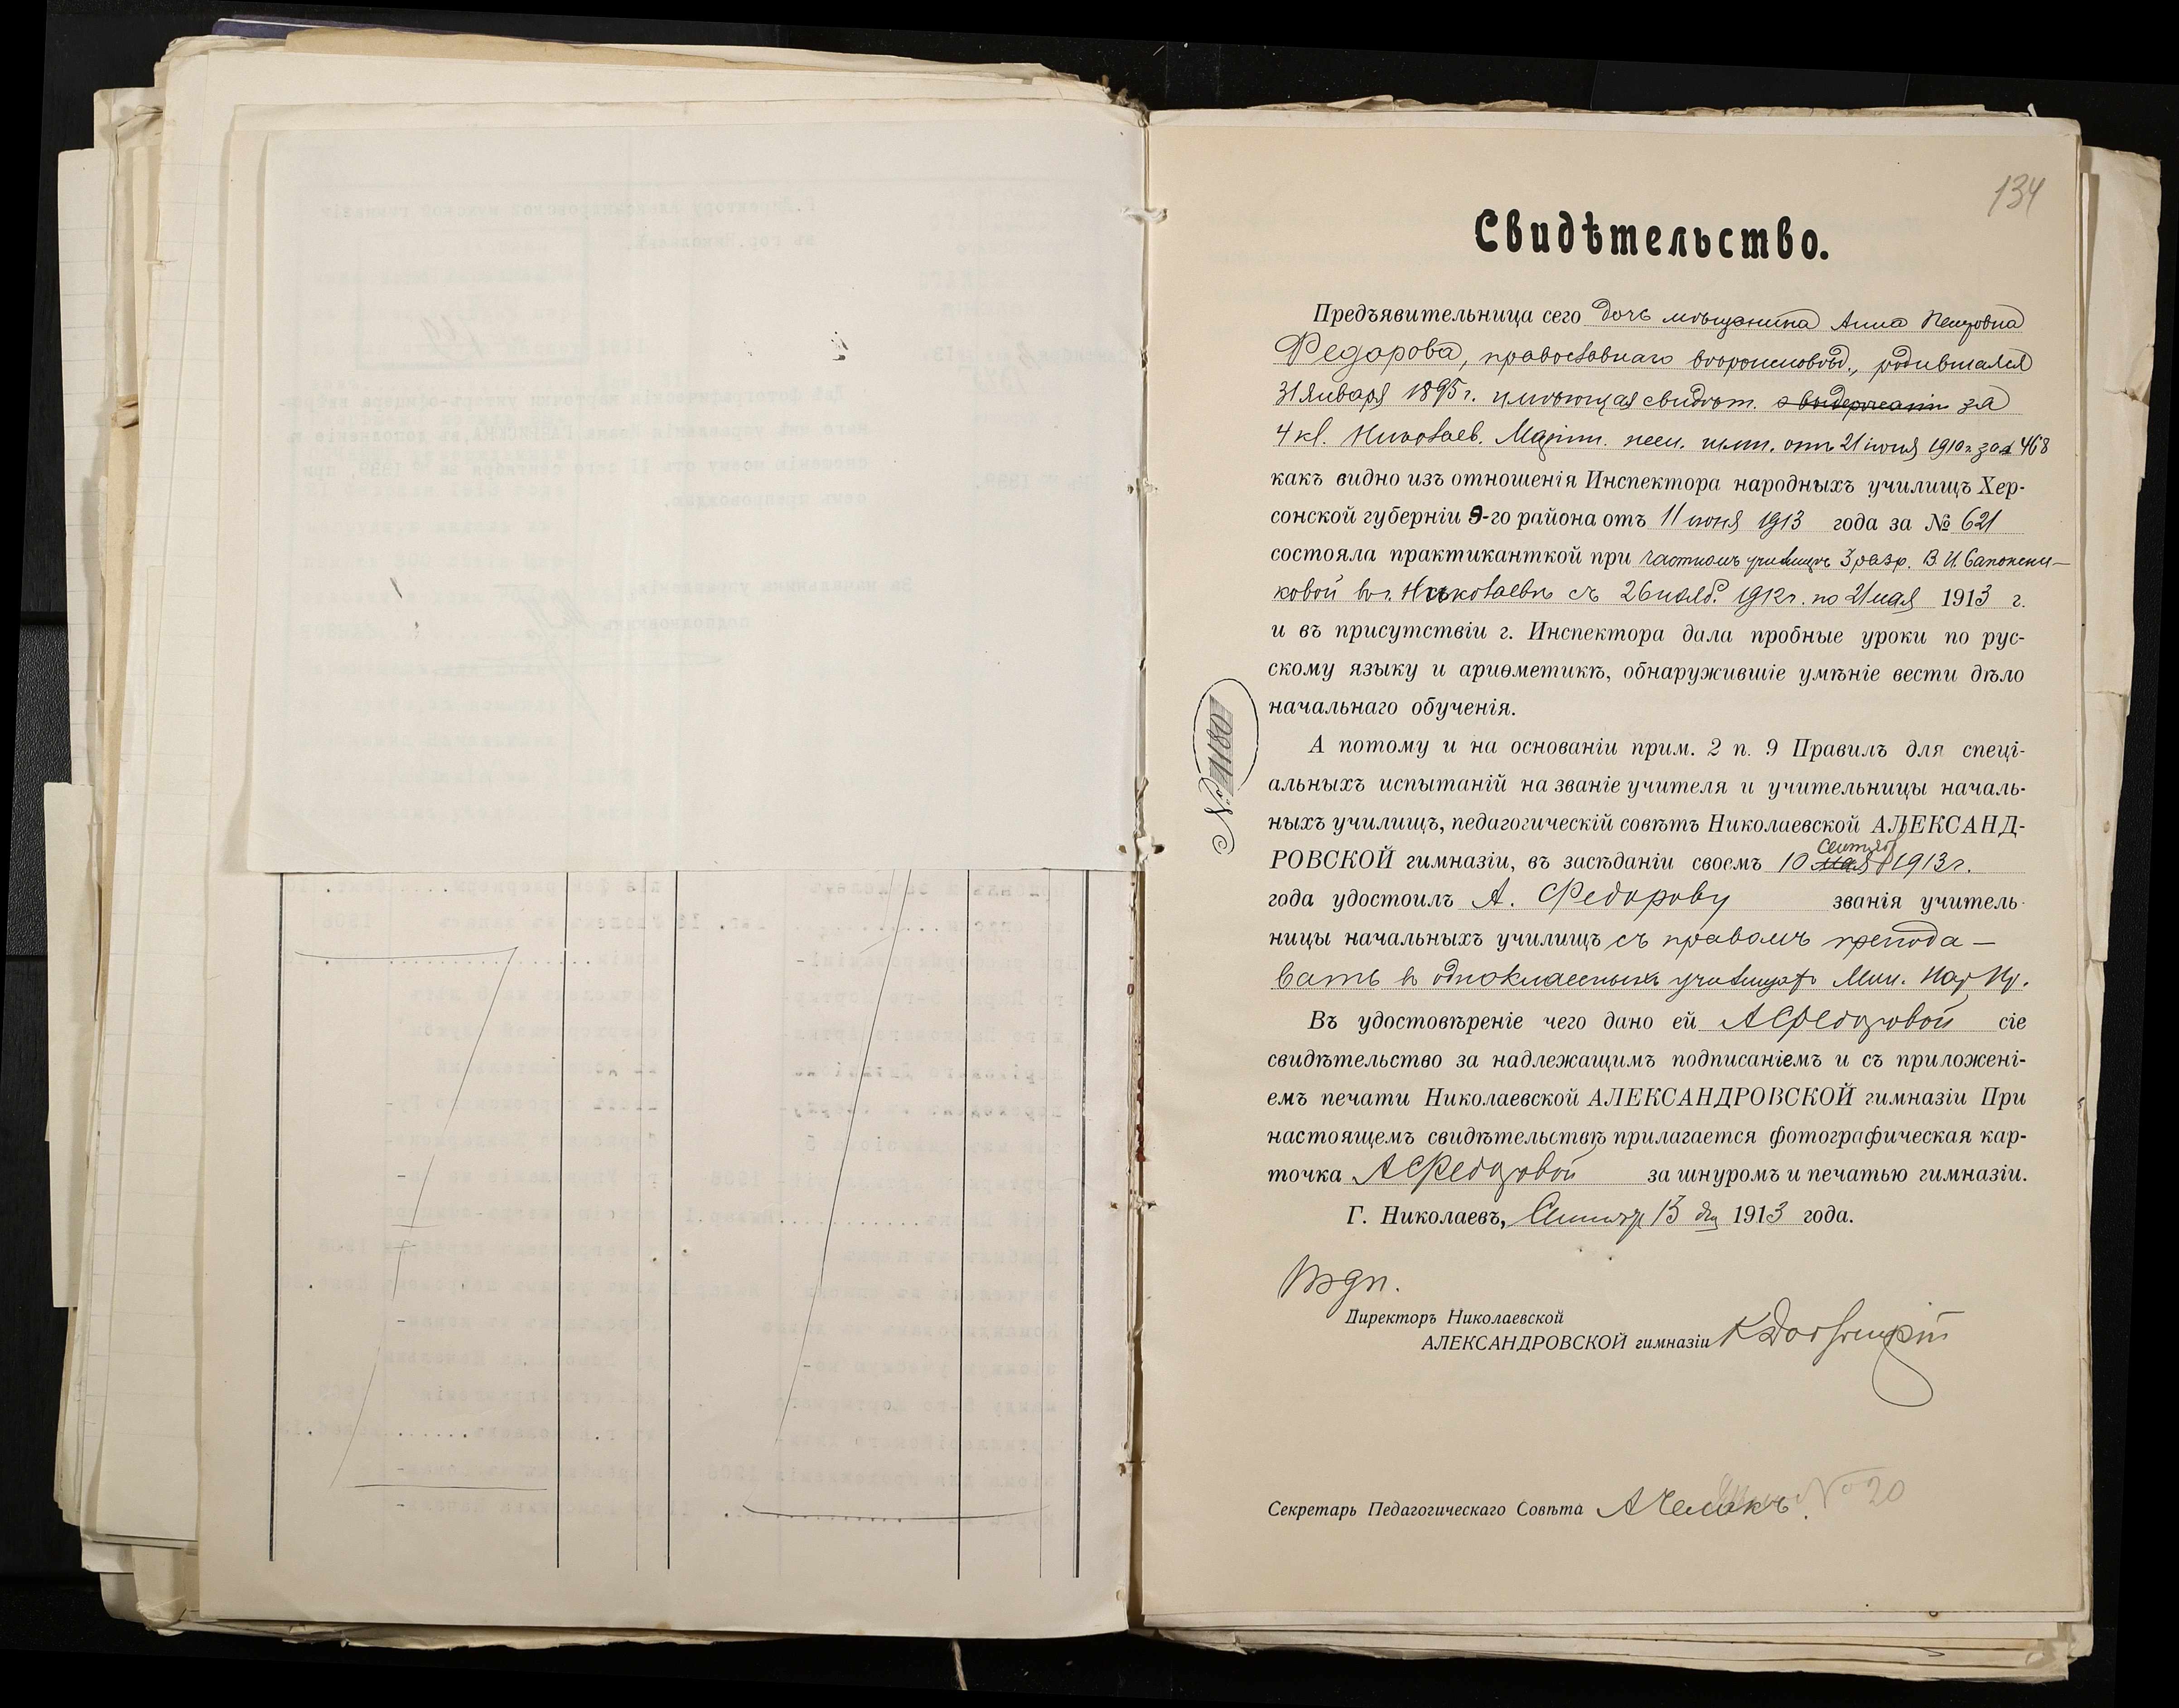 134
Свидѣтельство.
Предъявительница сего дочь мѣщанина Анна Петровна
Федорова, православнаго вѣроисповѣд., родившаяся
31 января 1895 г. имѣющая свидѣт. о выдержаніи за
4 кл. Николаев. Маріин. жен. гимн. отъ 21 іюня 1910 г. за № 468
какъ видно изъ отношенія Инспектора народныхъ училищъ Хер-
сонской губерніи 9-го района отъ 11 іюня 1913 года за № 621
состояла практиканткой при частномъ училищѣ 3 разр. В. И. Сапожни-
ковой въ г. Николаевѣ съ 26 нояб. 1912 г. по 21 мая 1913 г.
и въ присутствіи г. Инспектора дала пробные уроки по рус-
скому языку и ариѳметикѣ, обнаружившіе умѣніе вести дѣло
начальнаго обученія.
№ 1180
А потому и на основаніи прим. 2 п. 9 Правилъ для спеці-
альныхъ испытаній на званіе учителя и учительницы началь-
ныхъ училищъ, педагогическій совѣтъ Николаевской АЛЕКСАНД-
РОВСКОЙ гимназіи, въ засѣданіи своемъ 10 мая Сентяб 1913 г.
года удостоилъ А. Федорову званія учитель-
ницы начальныхъ училищъ съ правомъ препода-
вать въ одноклассныхъ училищахъ Мин. Нар. Пр.
Въ удостовѣреніе чего дано ей А Федоровой сіе
свидѣтельство за надлежащимъ подписаніемъ и съ приложені-
емъ печати Николаевской АЛЕКСАНДРОВСКОЙ гимназіи При
настоящемъ свидѣтельствѣ прилагается фотографическая кар-
точка А Федоровой за шнуромъ и печатью гимназіи.
Г. Николаевъ, Сентяр 13 дня 1913 года.
Директоръ Николаевской
АЛЕКСАНДРОВСКОЙ гимназіи
Секретарь Педагогическаго Совѣта
№ 20